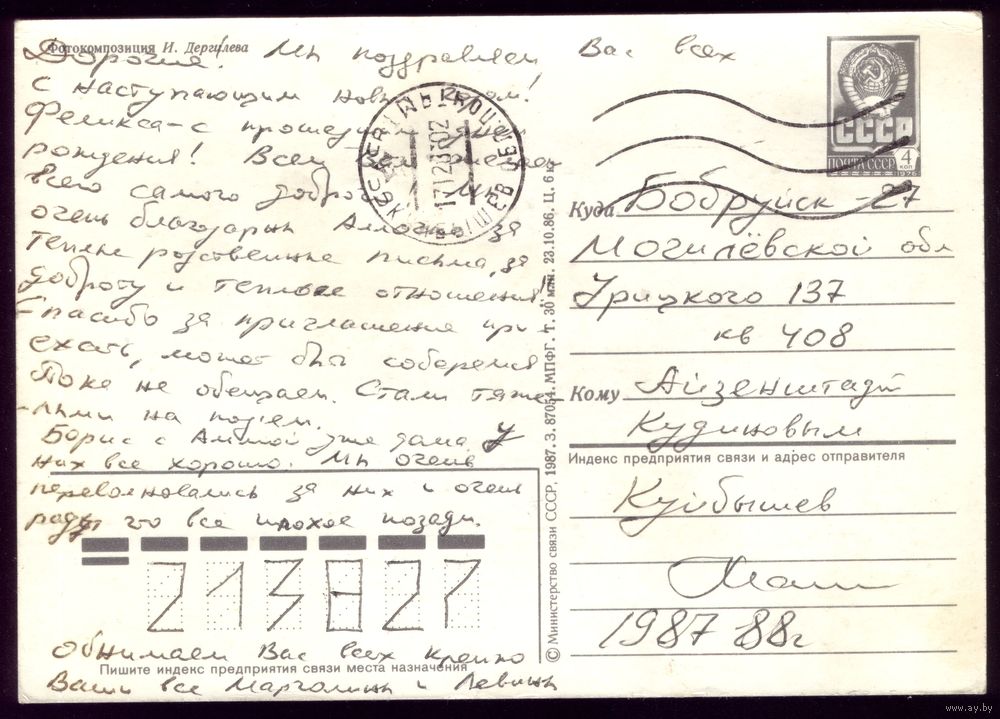 Фотокомпозиция И. Дергилева
Дорогие! Мы поздравляем Вас всех
с наступающим Новым годом!
Феликса-с прошедшим днем
рождения! Всем Вам желаем
всего самого доброго. Мы
очень благодарны Аллочке за
теплые родственные письма, за
доброту и теплые отношения!
Спасибо за приглашение при
ехать, может быть соберемся
Пока не обещаем. Стали тяже
-лыми на подъем.
Борис с Аллой уже дома. У
них все хорошо. Мы очень
переволновались за них и очень
рады что все плохое позади.
213827
Обнимаем Вас всех крепко
Пишите индекс предприятия связи места назначения
Ваши все Марголины и Левины
КУЙБЫШЕВ
17128702
© Министерство связи СССР, 1987. З. 87054. МПФГ. Т. 30 млн. 23.10.86. Ц. 6 к.
СССР
ПОЧТА СССР 4 КОП
1976
Куда Бобруйск - 27
Могилёвской обл
Урицкого 137
кв 408
Кому Айзенштадт
Кудиновым
Индекс предприятия связи и адрес отправителя
Куйбышев
1987 88г
www.ay.by